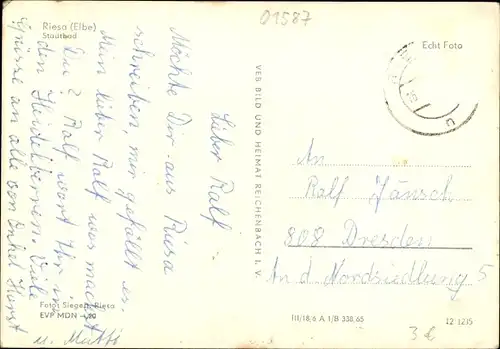 01587
Riesa (Elbe)
Stadtbad
Echt Foto
Lieber Ralf
Möchte Dir aus Riesa
schreiben, mir gefällt es.
Mein lieber Ralf was machst
Du? Ralf wart Ihr in
den Heidelbeeren. Viele
Grüsse an alle von Onkel Horst
u. Mutti
VEB BILD UND HEIMAT REICHENBACH I. V.
An
Ralf Jänsch
808 Dresden
An d Nordsiedlung 5
Foto: Siegert, Riesa
EVP MDN -,20
III/18/6 A 1/B 338/65
12 1215